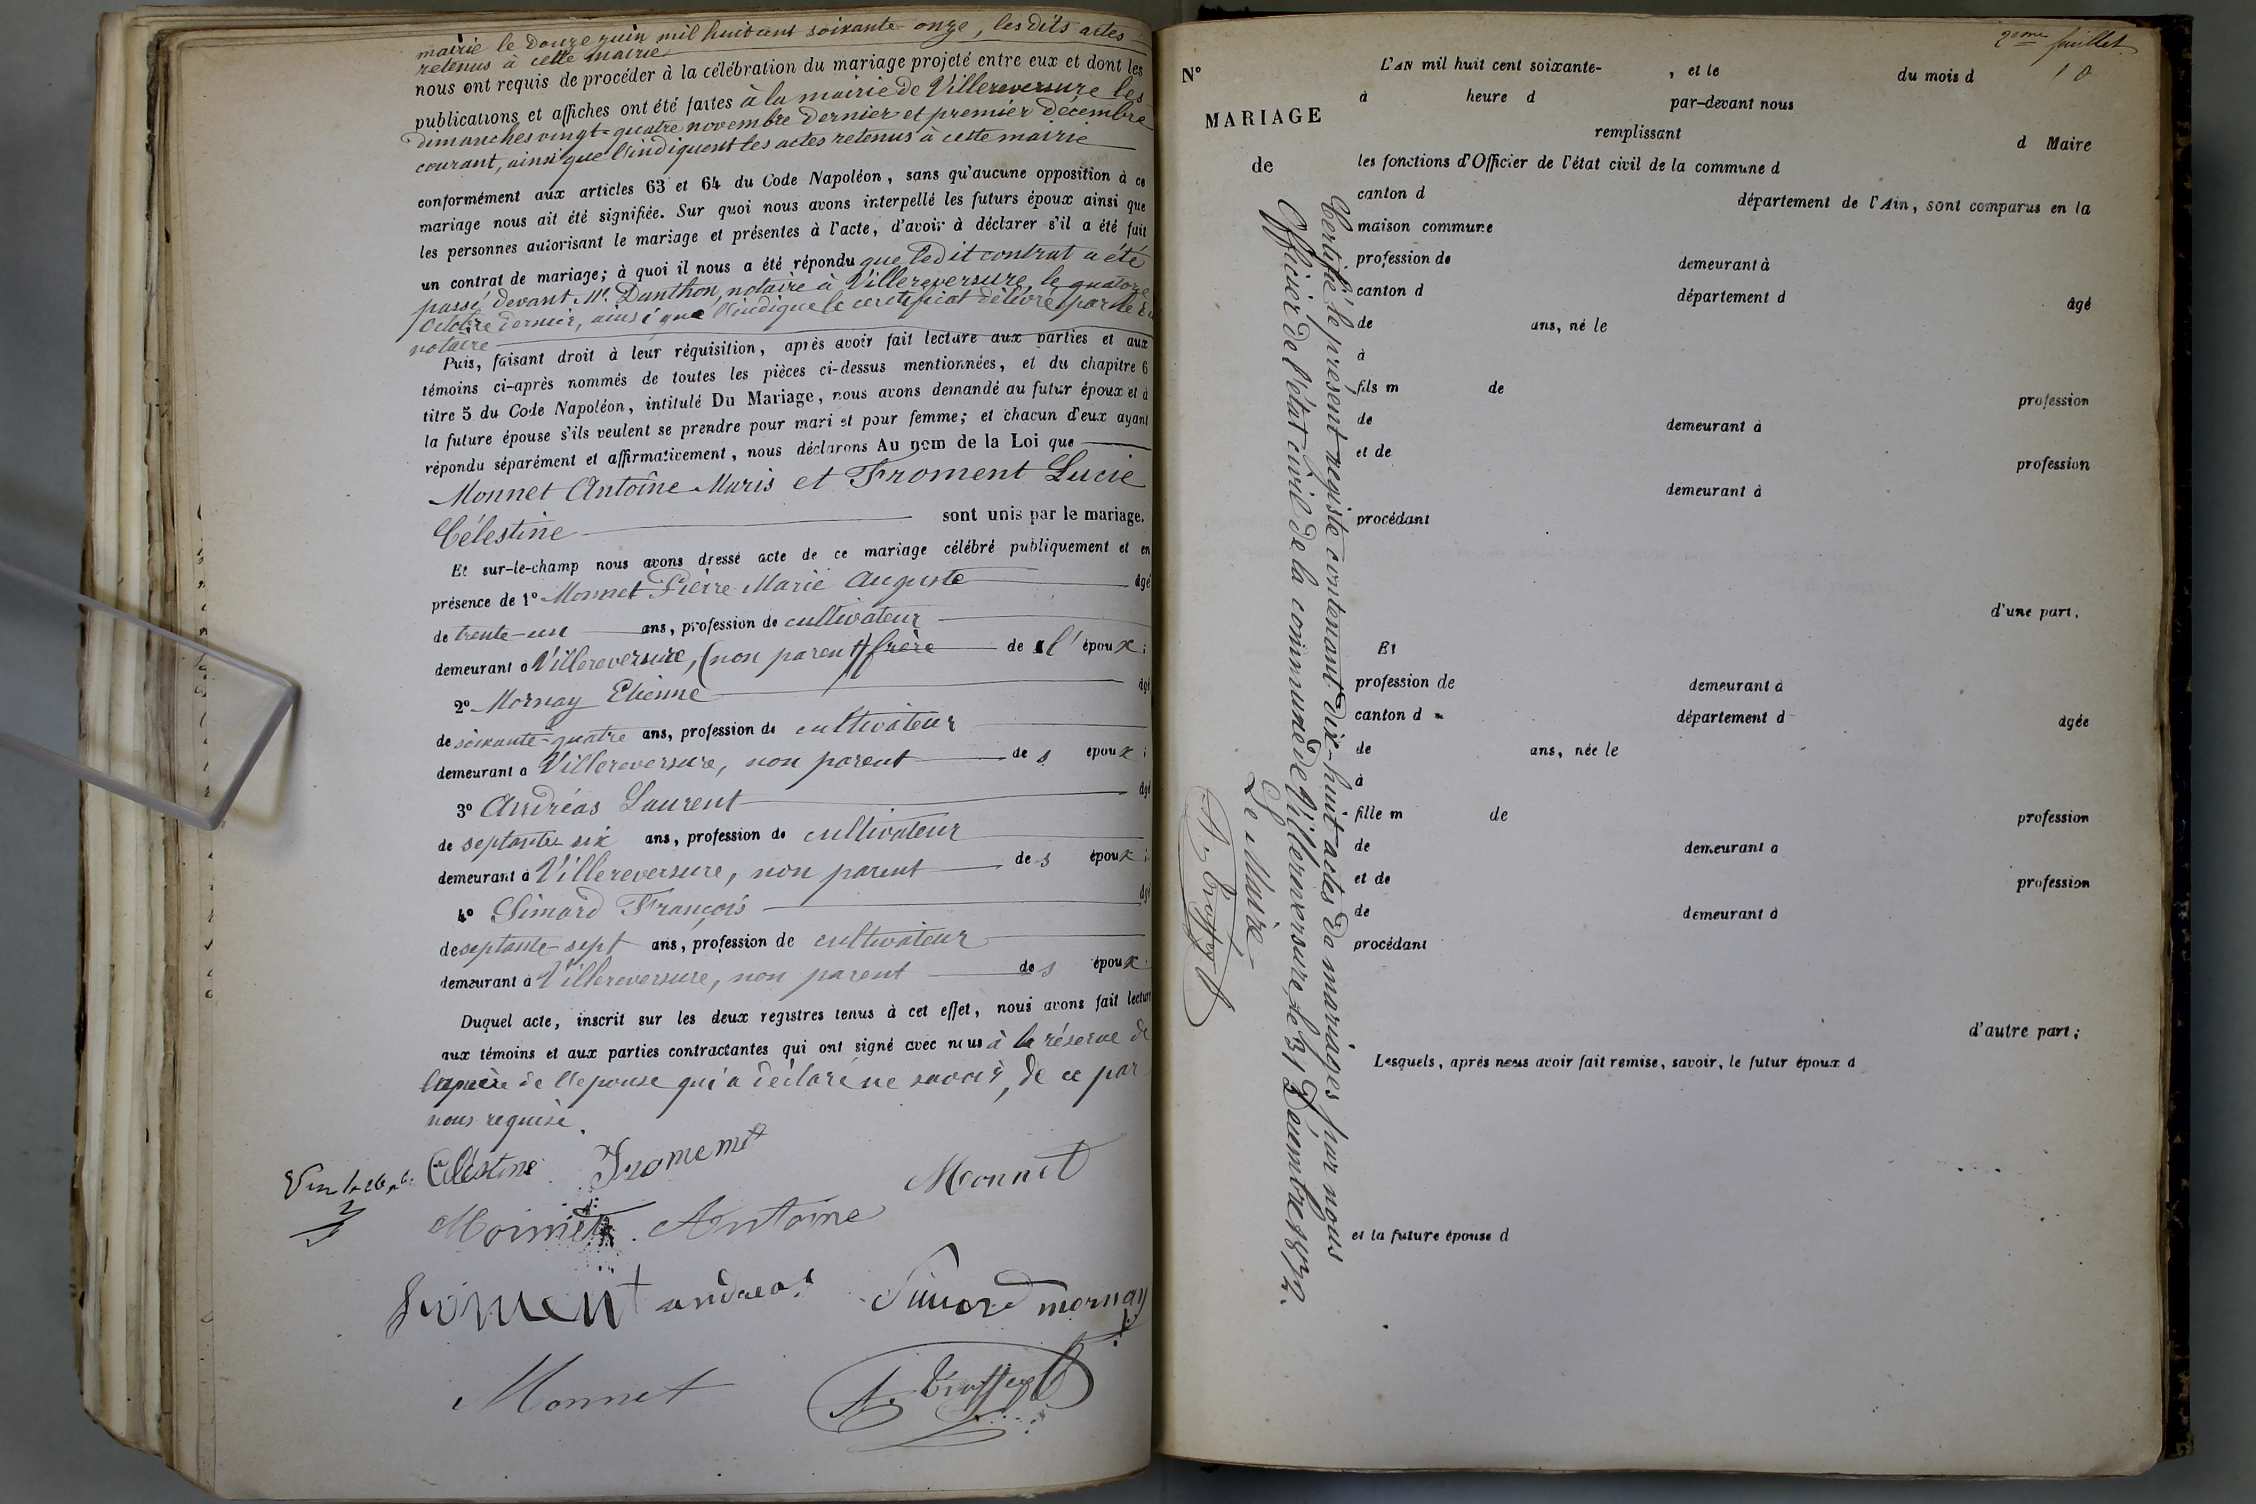 mairie le Douze juin mil huit cent soixante-onze, les dits actes
retenus à cette mairie
nous ont requis de procéder à la célébration du mariage projeté entre eux et dont les
publications et affiches ont été faites à la mairie de Villereversure les
dimanches vingt-quatre novembre dernier et premier décembre
courant, ainsi que l'indiquent les actes retenus à cette mairie
conformément aux articles 63 et 64 du Code Napoléon, sans qu'aucune opposition à ce
mariage nous ait été signifiée. Sur quoi nous avons interpellé les futurs époux ainsi que
les personnes autorisant le mariage et présentes à l'acte, d'avoir à déclarer s'il a été fait
un contrat de mariage; à quoi il nous a été répondu que ledit contrat a été
passé devant Me. Danthon, notaire à Villereversure, le quatorze
Octobre dernier, ainsi que l'indique le certificat délivré par le dit
notaire
Puis, faisant droit à leur réquisition, après avoir fait lecture aux parties et aux
témoins ci-après nommés de toutes les pièces ci-dessus mentionnées, et du chapitre 6
titre 5 du Code Napoléon, intitulé Du Mariage, nous avons demandé au futur époux et à
la future épouse s'ils veulent se prendre pour mari et pour femme; et chacun d'eux ayant
répondu séparément et affirmativement, nous déclarons Au nom de la Loi que
Monnet Antoine Maris et Froment Lucie
Célestine sont unis par le mariage.
Et sur-le-champ nous avons dressé acte de ce mariage célébré publiquement et en
présence de 1º Monnet Pierre Marie Auguste âgé
de trente-un ans, profession de cultivateur
demeurant à Villereversure, (non parent) frère de l'époux;
2º Mornay Etienne âgé
de soixante-quatre ans, profession de cultivateur
demeurant à Villereversure, non parent des époux;
3º Andréas Laurent âgé
de septante six ans, profession de cultivateur
demeurant à Villereversure, non parent des époux;
4º Simard François âgé
de septante-sept ans, profession de cultivateur
demeurant à Villereversure, non parent des époux.
Duquel acte, inscrit sur les deux registres tenus à cet effet, nous avons fait lecture
aux témoins et aux parties contractantes qui ont signé avec nous à la réserve de
la mère de l'épouse qui a déclaré ne savoir, de ce par
nous requise.
Célestine Froment
Monnet
Monnet Antoine
froment andreas Simard mornay
Monnet
2ème feuillet
10
Nº
MARIAGE
de
L'AN mil huit cent soixante- , et le du mois d
à heure d par-devant nous
remplissant d Maire
les fonctions d'Officier de l'état civil de la commune d
canton d département de l'Ain, sont comparus en la
maison commune
profession de demeurant à
canton d département d âgé
de ans, né le
à
fils m de profession
de demeurant à
et de profession
demeurant à
procédant
d'une part.
Et
profession de demeurant à
canton d département d âgée
de ans, née le
à
fille m de profession
de demeurant à
et de profession
de demeurant à
procédant
d'autre part;
Lesquels, après nous avoir fait remise, savoir, le futur époux d
et la future épouse d
Certifié le présent registe contenant dix-huit actes de mariages par nous
Officier de l'état civil de la commune de Villereversure, le 31 Décembre 1872.
Le Maire